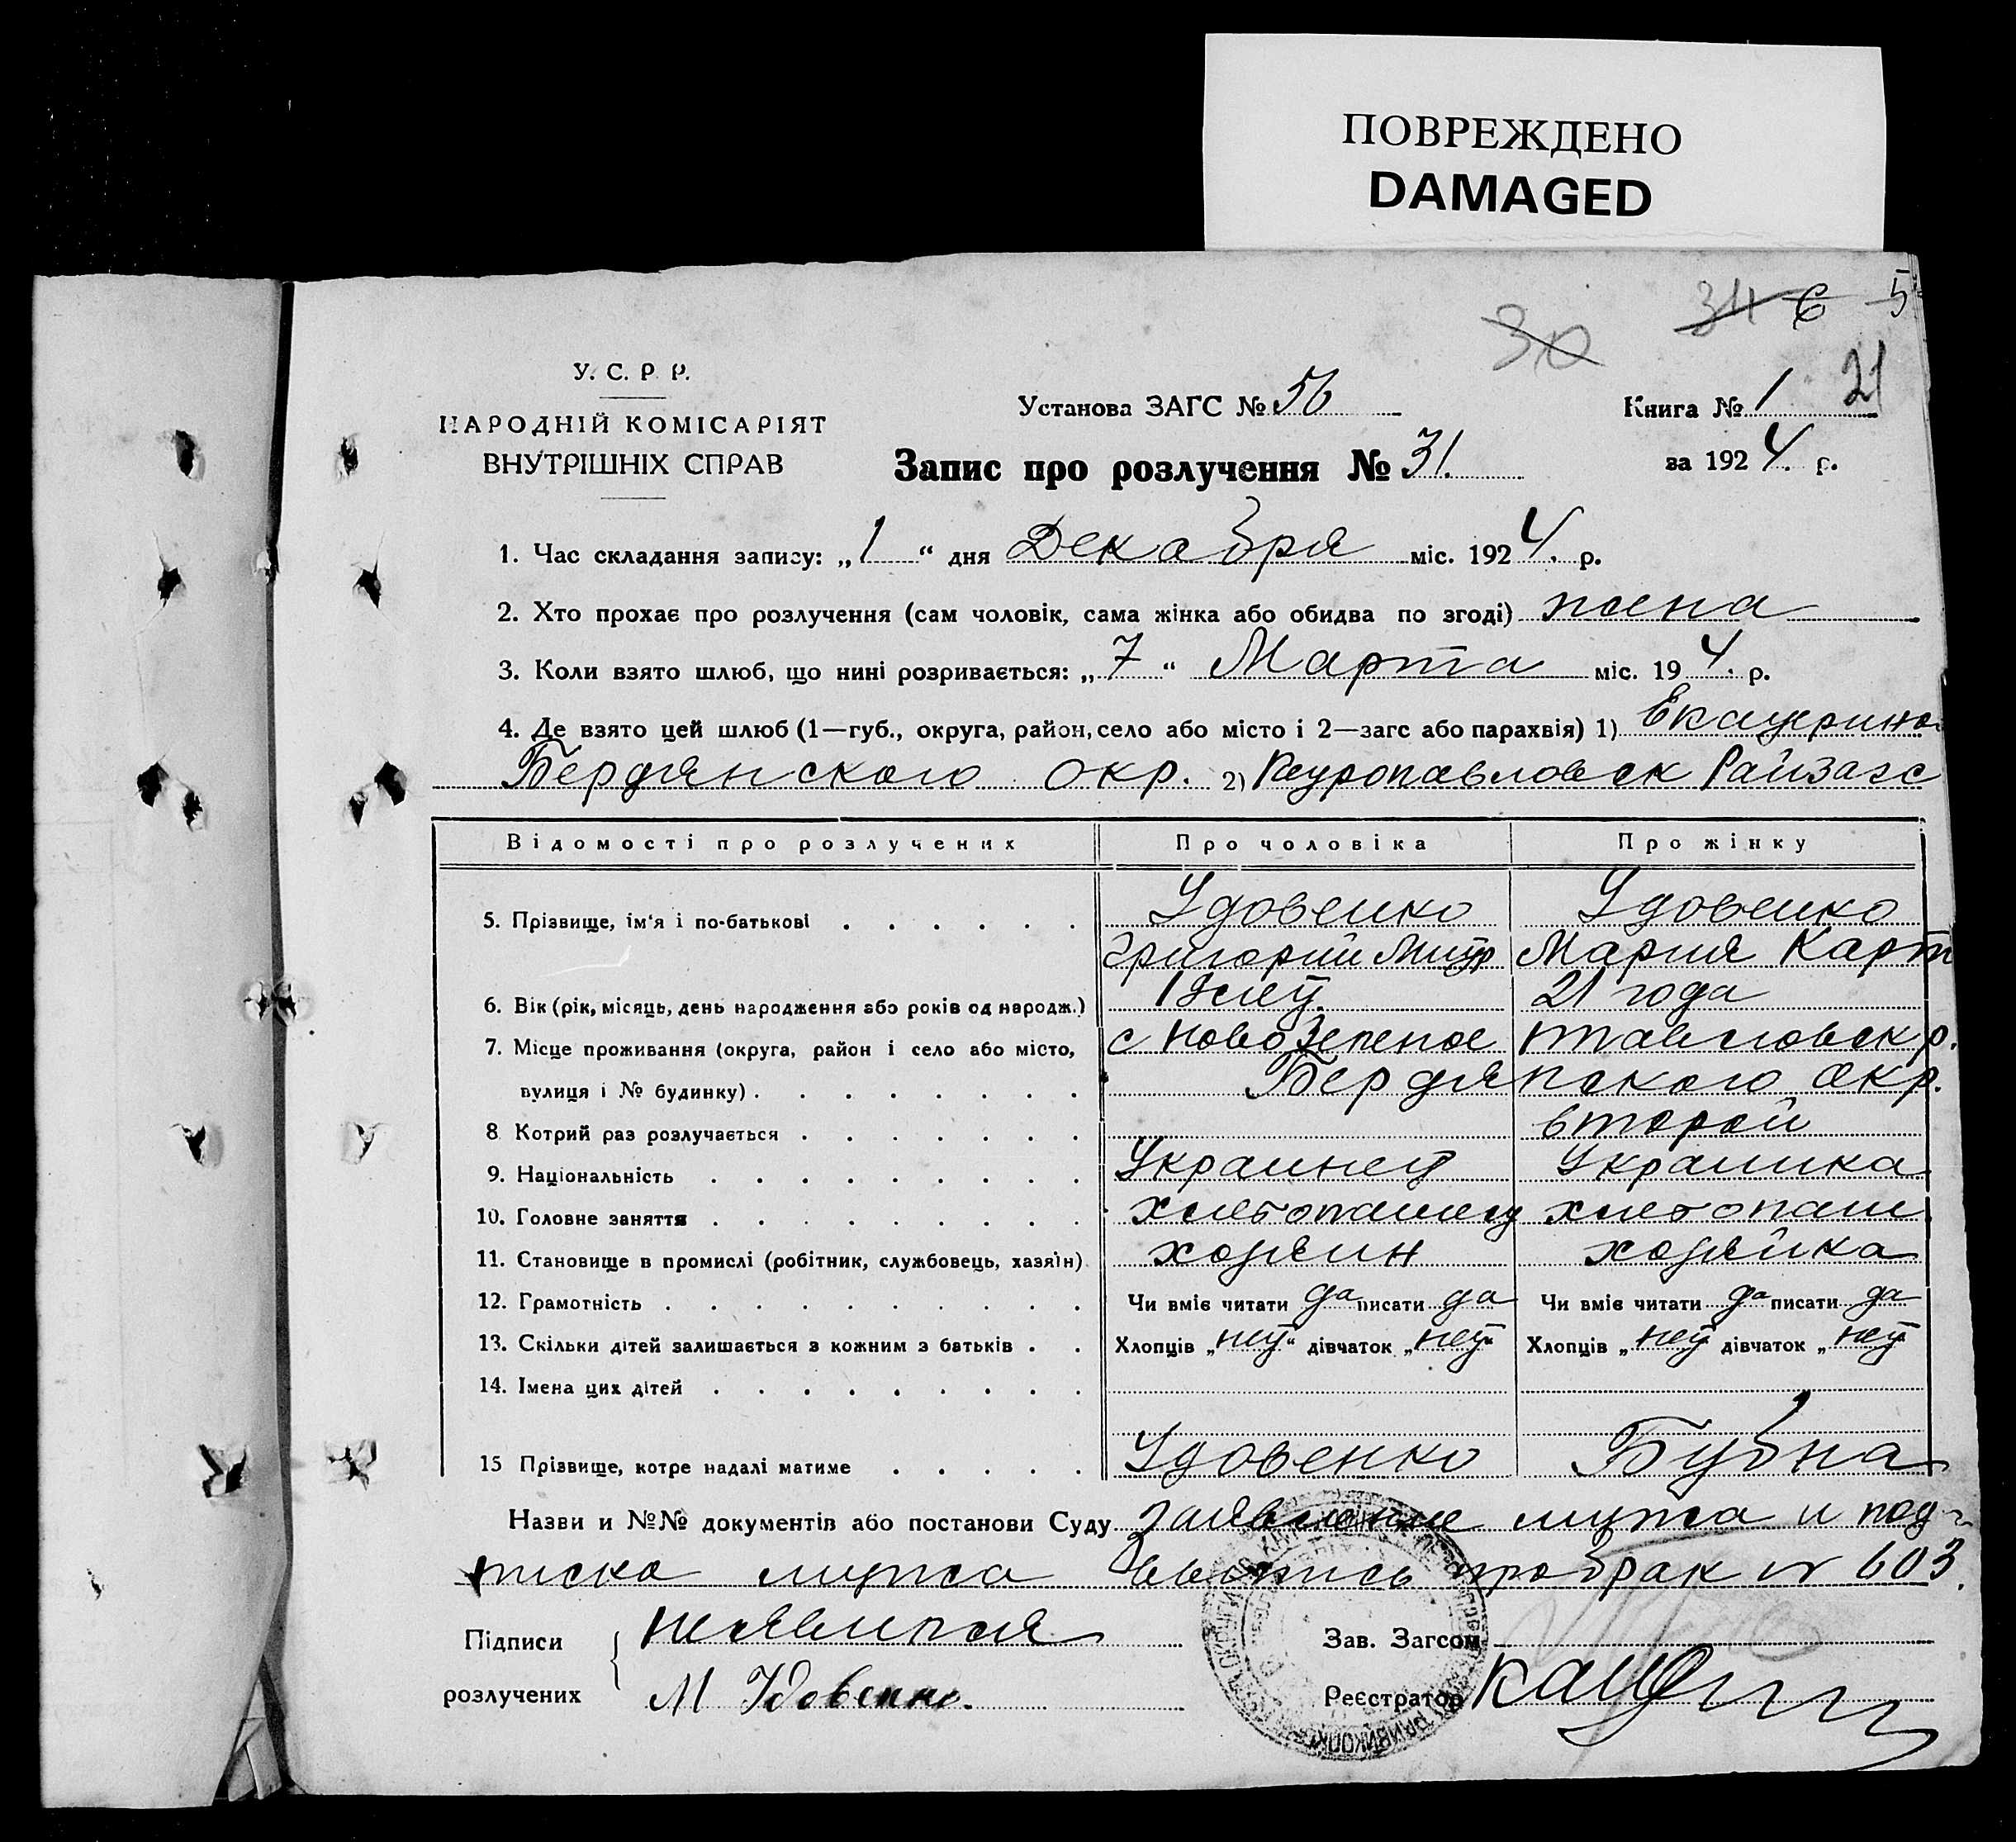 ПОВРЕЖДЕНО
DAMAGED
30 34 6 5
21
У. С. Р. Р.
НАРОДНІЙ КОМІСАРІЯТ
ВНУТРІШНІХ СПРАВ
Установа ЗАГС № 56
Книга № 1
Запис про розлучення № 31.
за 1924. р.
1. Час складання запису: „1“ дня Декабря міс. 1924. р.
2. Хто прохає про розлучення (сам чоловік, сама жінка або обидва по згоді) жена
3. Коли взято шлюб, що нині розривається: „7“ Марта міс. 19 4. р.
4. Де взято цей шлюб (1—губ., округа, район, село або місто і 2—загс або парахвія) 1) Екатерино
Бердянского окр. 2) Петропавловск Райзагс
Відомості про розлучених Про чоловіка Про жінку
5. Прізвище, ім'я і по-батькові Удовенко Удовенко
Григорий Митр Мария Карп
6. Вік (рік, місяць, день народження або років од народж.) 18 лет. 21 года
7. Місце проживання (округа, район і село або місто, с Ново Зеленое павловск р.
вулиця і № будинку) Бердянского окр.
8 Котрий раз розлучається второй
9. Національність Украинец Украинка
10. Головне заняття хлебопашец хлебопаш
11. Становище в промислі (робітник, службовець, хазяїн) хозяин хозяйка
12. Грамотність Чи вміє читати да писати да Чи вміє читати да писати да
13. Скільки дітей залишається з кожним з батьків Хлопців „нет“ дівчаток „нет“ Хлопців „нет дівчаток „нет
14. Імена цих дітей
15 Прізвище, котре надалі матиме Удовенко Бубна
Назви и №№ документів або постанови Суду Заявление мужа и под-
писка мужа Выпись про брак № 603.
Підписи неявился
Зав. Загсом
розлучених М Удовенко.
Реєстратор